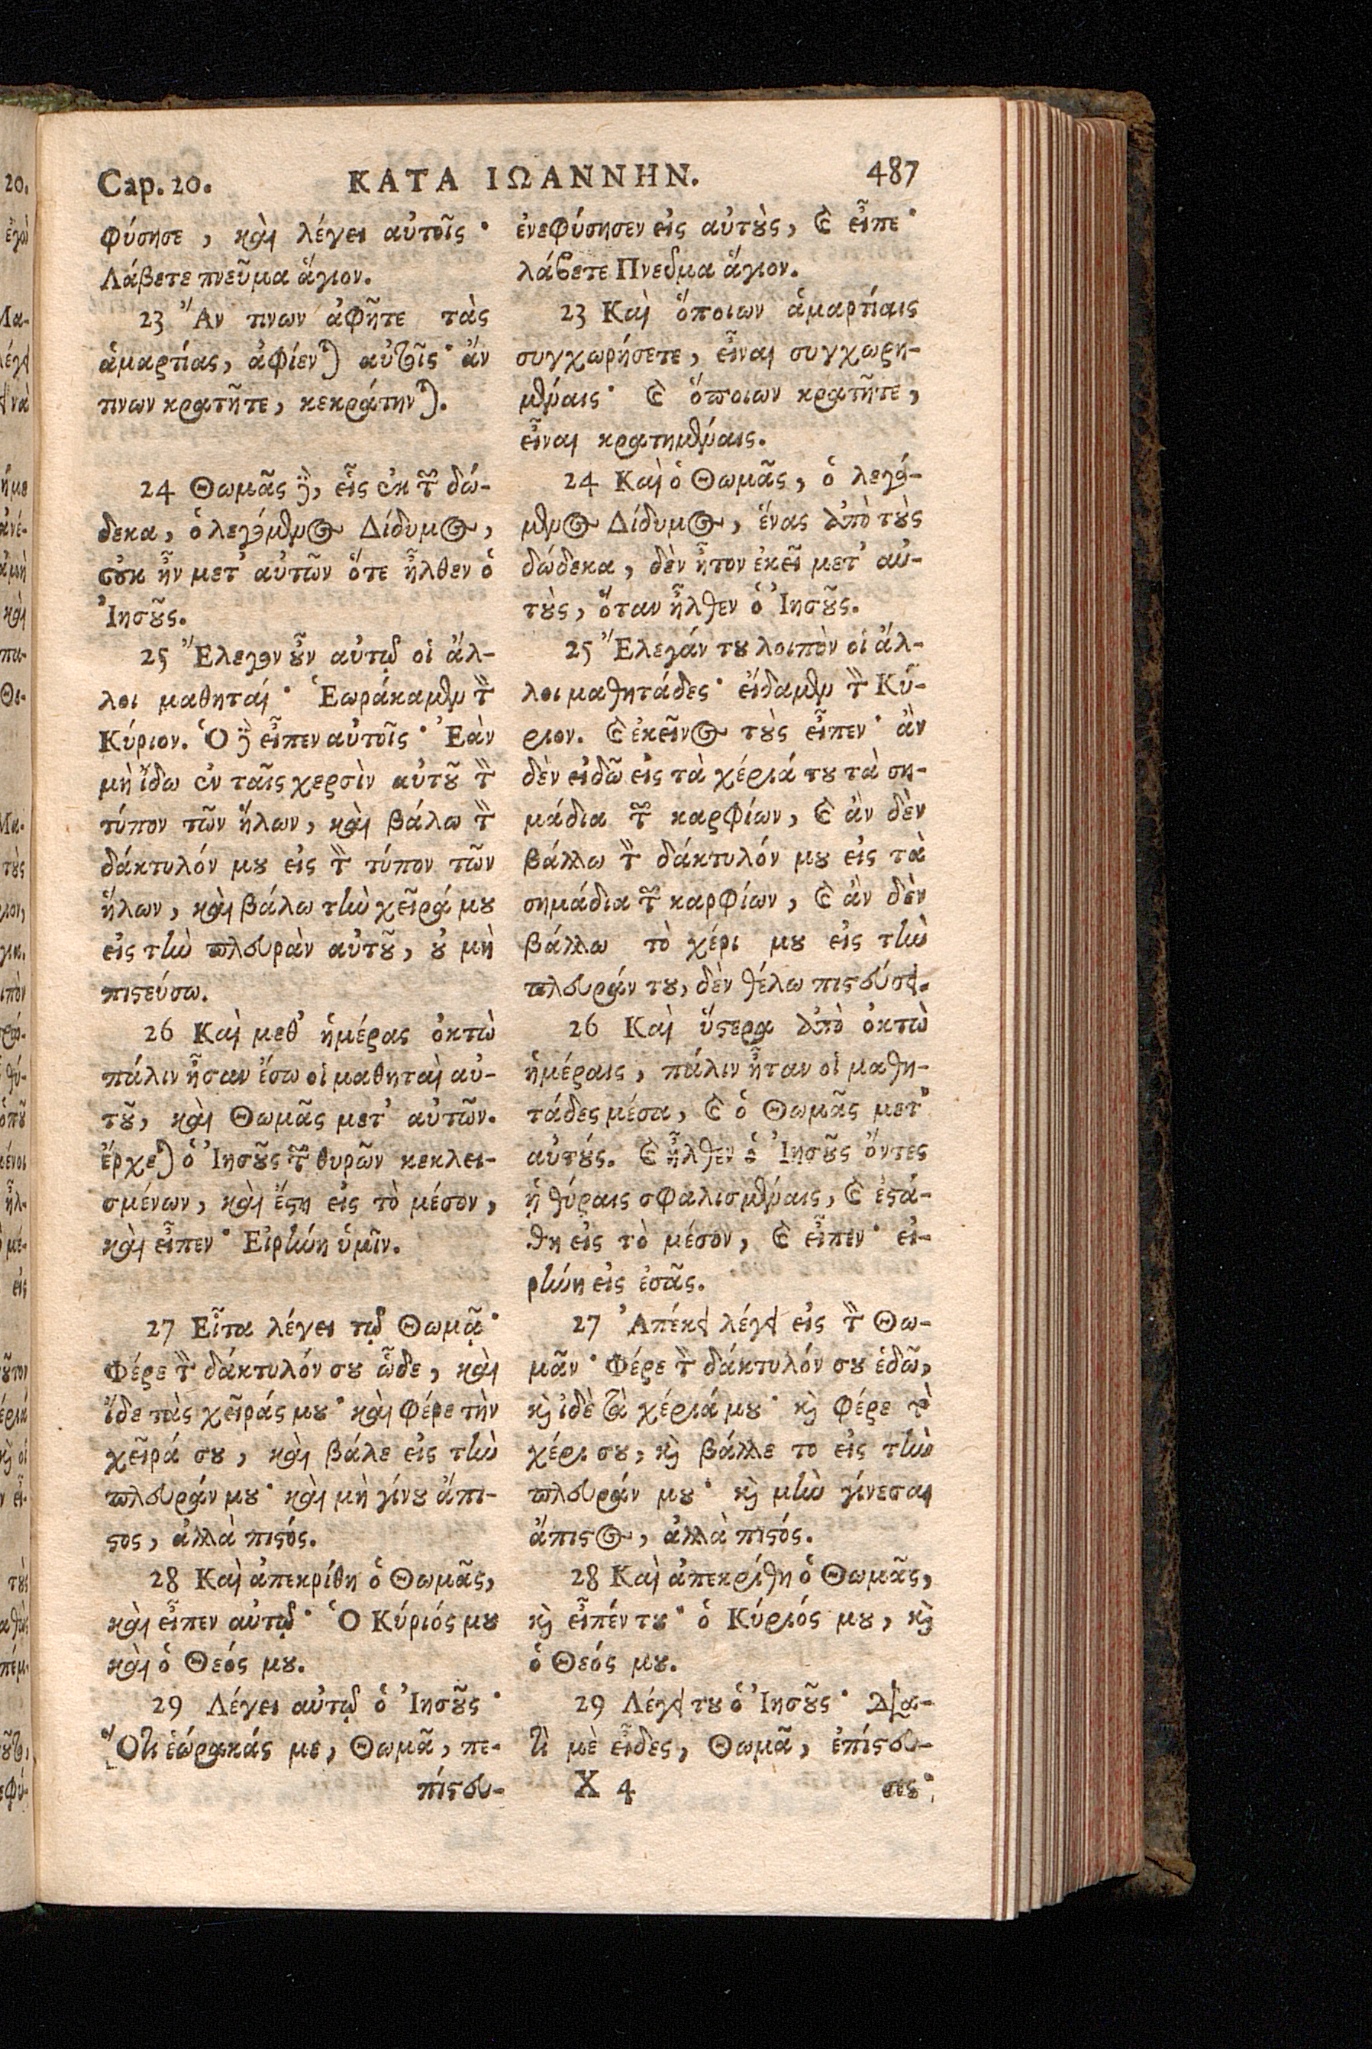 Cap. 20. ΚΑΤΑ ΙΩΑΝΝΗΝ. 487
φύσησε, καὶ λέγει αὐτοῖς·
Λάβετε πνεῦμα ἅγιον.
23 Ἄν τινων ἀφῆτε τὰς
ἁμαρτίας, ἀφίενται αὐτοῖς· ἄν
τινων κρατῆτε, κεκράτηνται.
24 Θωμᾶς δὲ, εἷς ἐκ τῶν δώ-
δεκα, ὁ λεγόμενος Δίδυμος,
οὐκ ἦν μετ' αὐτῶν ὅτε ἦλθεν ὁ
Ἰησοῦς.
25 Ἔλεγον οὖν αὐτῷ οἱ ἄλ-
λοι μαθηταί· Ἑωράκαμεν τὸν
Κύριον. Ὁ δὲ εἶπεν αὐτοῖς· Ἐὰν
μὴ ἴδω ἐν ταῖς χερσὶν αὐτοῦ τὸν
τύπον τῶν ἥλων, καὶ βάλω τὸν
δάκτυλόν μου εἰς τὸν τύπον τῶν
ἥλων, καὶ βάλω τὴν χεῖρά μου
εἰς τὴν πλευρὰν αὐτοῦ, οὐ μὴ
πιστεύσω.
26 Καὶ μεθ' ἡμέρας ὀκτὼ
πάλιν ἦσαν ἔσω οἱ μαθηταὶ αὐ-
τοῦ, καὶ Θωμᾶς μετ' αὐτῶν.
ἔρχεται ὁ Ἰησοῦς τῶν θυρῶν κεκλει-
σμένων, καὶ ἔστη εἰς τὸ μέσον,
καὶ εἶπεν· Εἰρήνη ὑμῖν.
27 Εἶτα λέγει τῷ Θωμᾷ·
Φέρε τὸν δάκτυλόν σου ὧδε, καὶ
ἴδε τὰς χεῖράς μου· καὶ φέρε τὴν
χεῖρά σου, καὶ βάλε εἰς τὴν
πλευράν μου· καὶ μὴ γίνου ἄπι-
στος, ἀλλὰ πιστός.
28 Καὶ ἀπεκρίθη ὁ Θωμᾶς,
καὶ εἶπεν αὐτῷ· Ὁ Κύριός μου
καὶ ὁ Θεός μου.
29 Λέγει αὐτῷ ὁ Ἰησοῦς·
Ὅτι ἑώρακάς με, Θωμᾶ, πε-
πίστευ-
ἐνεφύσησεν εἰς αὐτοὺς, καὶ εἶπε·
λάβετε Πνεῦμα ἅγιον.
23 Καὶ ὅποιων ἁμαρτίαις
συγχωρήσετε, εἶναι συγχωρη-
μέναις· καὶ ὅποιων κρατῆτε,
εἶναι κρατημέναις.
24 Καὶ ὁ Θωμᾶς, ὁ λεγό-
μενος Δίδυμος, ἕνας ἀπὸ τοὺς
δώδεκα, δὲν ἦτον ἐκεῖ μετ' αὐ-
τοὺς, ὅταν ἦλθεν ὁ Ἰησοῦς.
25 Ἔλεγάν του λοιπὸν οἱ ἄλ-
λοι μαθητάδες· εἴδαμεν τὸν Κύ-
ριον. καὶ ἐκεῖνος τοὺς εἶπεν· ἂν
δὲν εἰδῶ εἰς τὰ χέριά του τὰ ση-
μάδια τῶν καρφίων, καὶ ἂν δὲν
βάλλω τὸν δάκτυλόν μου εἰς τὰ
σημάδια τῶν καρφίων, καὶ ἂν δὲν
βάλλω τὸ χέρι μου εἰς τὴν
πλευράν του, δὲν θέλω πιστεύσει.
26 Καὶ ὕστερα ἀπὸ ὀκτὼ
ἡμέραις, πάλιν ἦταν οἱ μαθη-
τάδες μέσα, καὶ ὁ Θωμᾶς μετ'
αὐτούς. καὶ ἦλθεν ὁ Ἰησοῦς ὄντες
ᾑ θύραις σφαλισμέναις, καὶ ἐστά-
θη εἰς τὸ μέσον, καὶ εἶπεν· εἰ-
ρήνη εἰς ἐσᾶς.
27 Ἀπέκει λέγει εἰς τὸν Θω-
μᾶν· Φέρε τὸν δάκτυλόν σου ἐδῶ,
καὶ ἰδὲ τὰ χέριά μου· καὶ φέρε τὸ
χέρι σου, καὶ βάλλε το εἰς τὴν
πλευράν μου· καὶ μὴν γίνεσαι
ἄπιστος, ἀλλὰ πιστός.
28 Καὶ ἀπεκρίθη ὁ Θωμᾶς,
καὶ εἶπέν του· ὁ Κύριός μου, καὶ
ὁ Θεός μου.
29 Λέγει του ὁ Ἰησοῦς· Δια-
τὶ μὲ εἶδες, Θωμᾶ, ἐπίστευ-
X 4 σες·